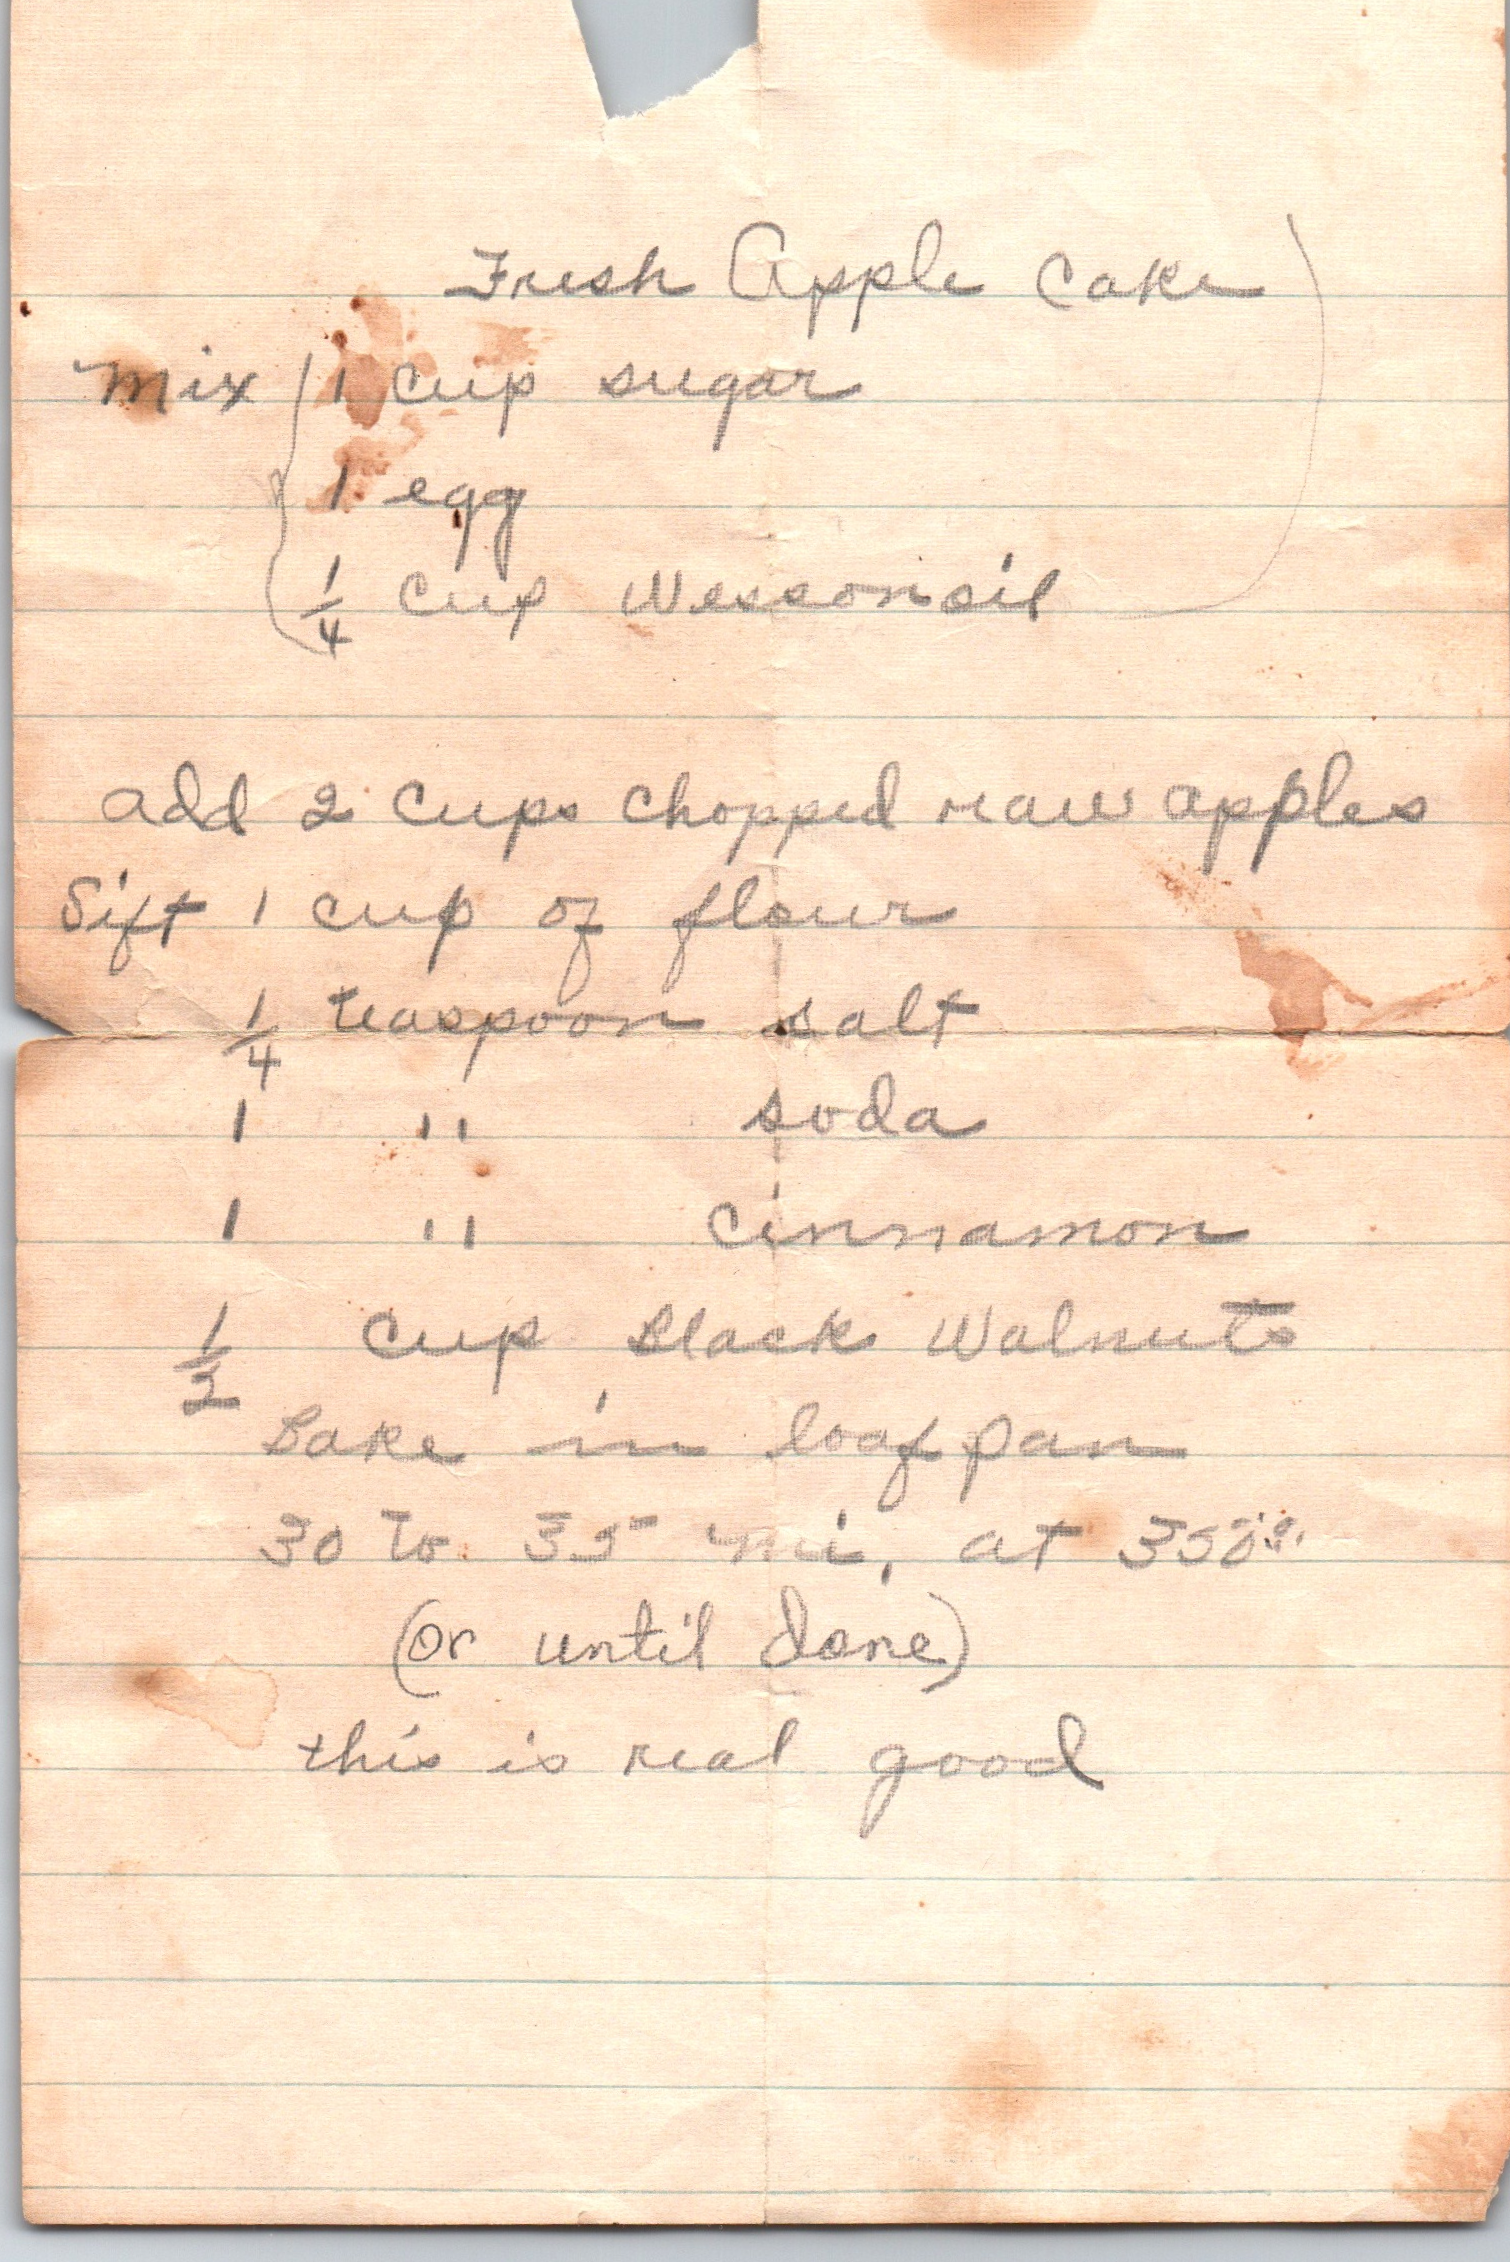 Fresh Apple Cake
Mix 1 cup sugar
1 egg
1/4 cup Wessonoil
add 2 cups chopped raw apples
Sift 1 cup of flour
1/4 teaspoon salt
1 " soda
1 " cinnamon
1/2 cup Black Walnuts
Bake in loaf pan
30 to 35 mi, at 350°
(or until done)
this is real good